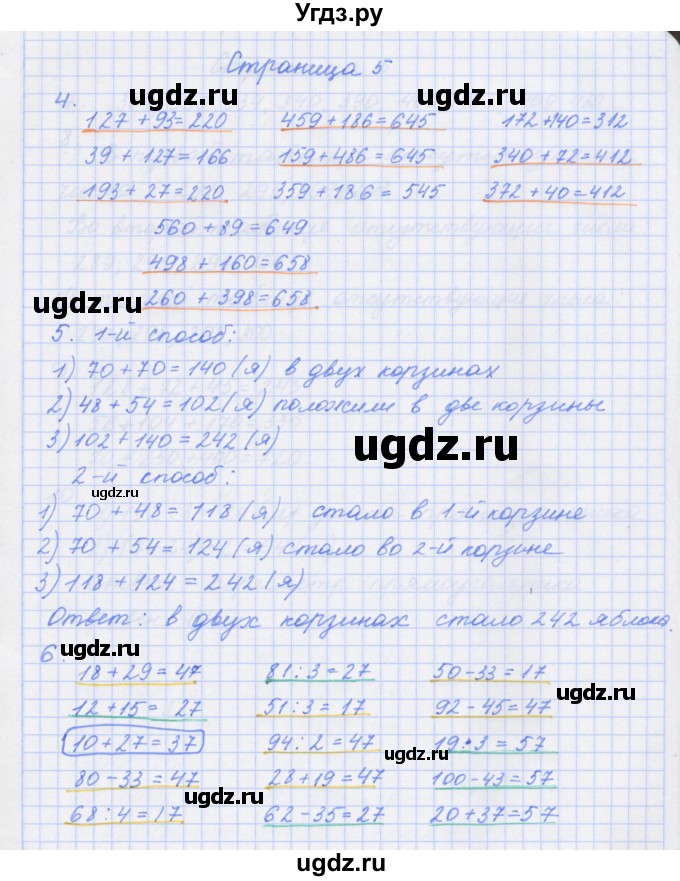 Угдз.ру
Страница 5
4.
127 + 93 = 220 459 + 186 = 645 172 + 140 = 312
39 + 127 = 166 159 + 486 = 645 340 + 72 = 412
193 + 27 = 220 359 + 186 = 545 372 + 40 = 412
560 + 89 = 649
498 + 160 = 658
260 + 398 = 658
5. 1-й способ:
1) 70 + 70 = 140 (я) в двух корзинах
2) 48 + 54 = 102 (я) положили в две корзины
3) 102 + 140 = 242 (я)
2-й способ:
1) 70 + 48 = 118 (я) стало в 1-й корзине
2) 70 + 54 = 124 (я) стало во 2-й корзине
3) 118 + 124 = 242 (я)
Ответ: в двух корзинах стало 242 яблока.
6.
18 + 29 = 47 81 : 3 = 27 50 - 33 = 17
12 + 15 = 27 51 : 3 = 17 92 - 45 = 47
10 + 27 = 37 94 : 2 = 47 19 · 3 = 57
80 - 33 = 47 28 + 19 = 47 100 - 43 = 57
68 : 4 = 17 62 - 35 = 27 20 + 37 = 57
ugdz.ru
ugdz.ru
ugdz.ru
ugdz.ru
ugdz.ru
ugdz.ru
ugdz.ru
ugdz.ru
ugdz.ru
ugdz.ru
ugdz.ru
ugdz.ru